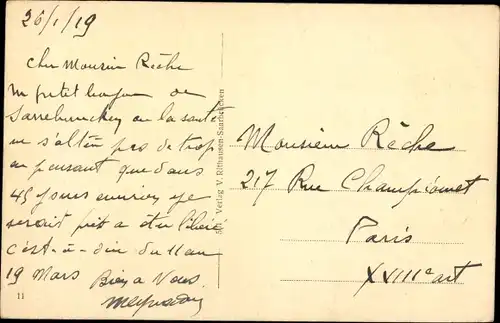 26/1/19
Cher Monsieur Rèche
Un petit bonjour de
Sarrebrucken ou la santé
ne s'altère pas de trop
en pensant que dans
45 jours environ je
serait prêt a être libéré
c'est-à-dire du 11 au
19 Mars Bien a Vous.
11
504 Verlag V. Ritthausen-Saarbrücken
Monsieur Rèche
217 Rue Championnet
Paris
XVIIIe art